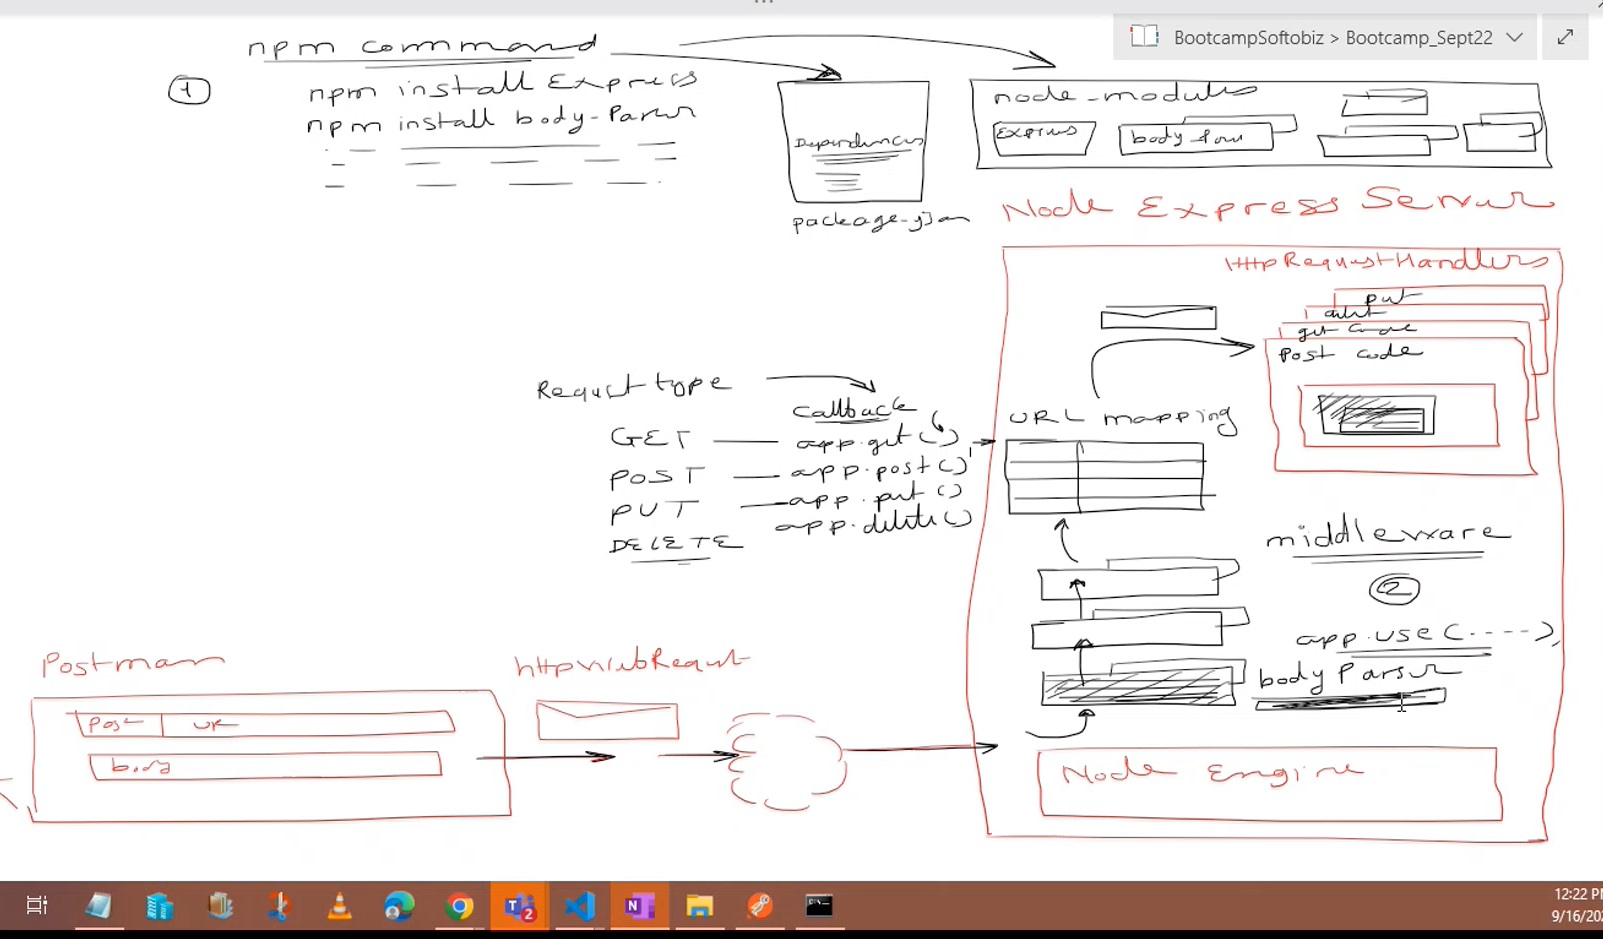 BootcampSoftobiz > Bootcamp_Sept22
npm command
1
npm install Express
npm install body-Parser
Dependencies
package-json
node-modules
Express
body Pars
Node Express Server
HttpRequestHandlers
put
delet
get code
Post code
Request type
Callback
GET
app.get()
POST
app.post()
PUT
app.put()
DELETE
app.delete()
URL mapping
middleware
2
app.use(.....),
body Parser
Postman
Post
body
Node Engine
T
2
N
12:22 P
9/16/20